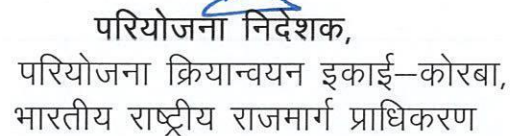 परियोजना निदेशक,
परियोजना क्रियान्वयन इकाई–कोरबा,
भारतीय राष्ट्रीय राजमार्ग प्राधिकरण